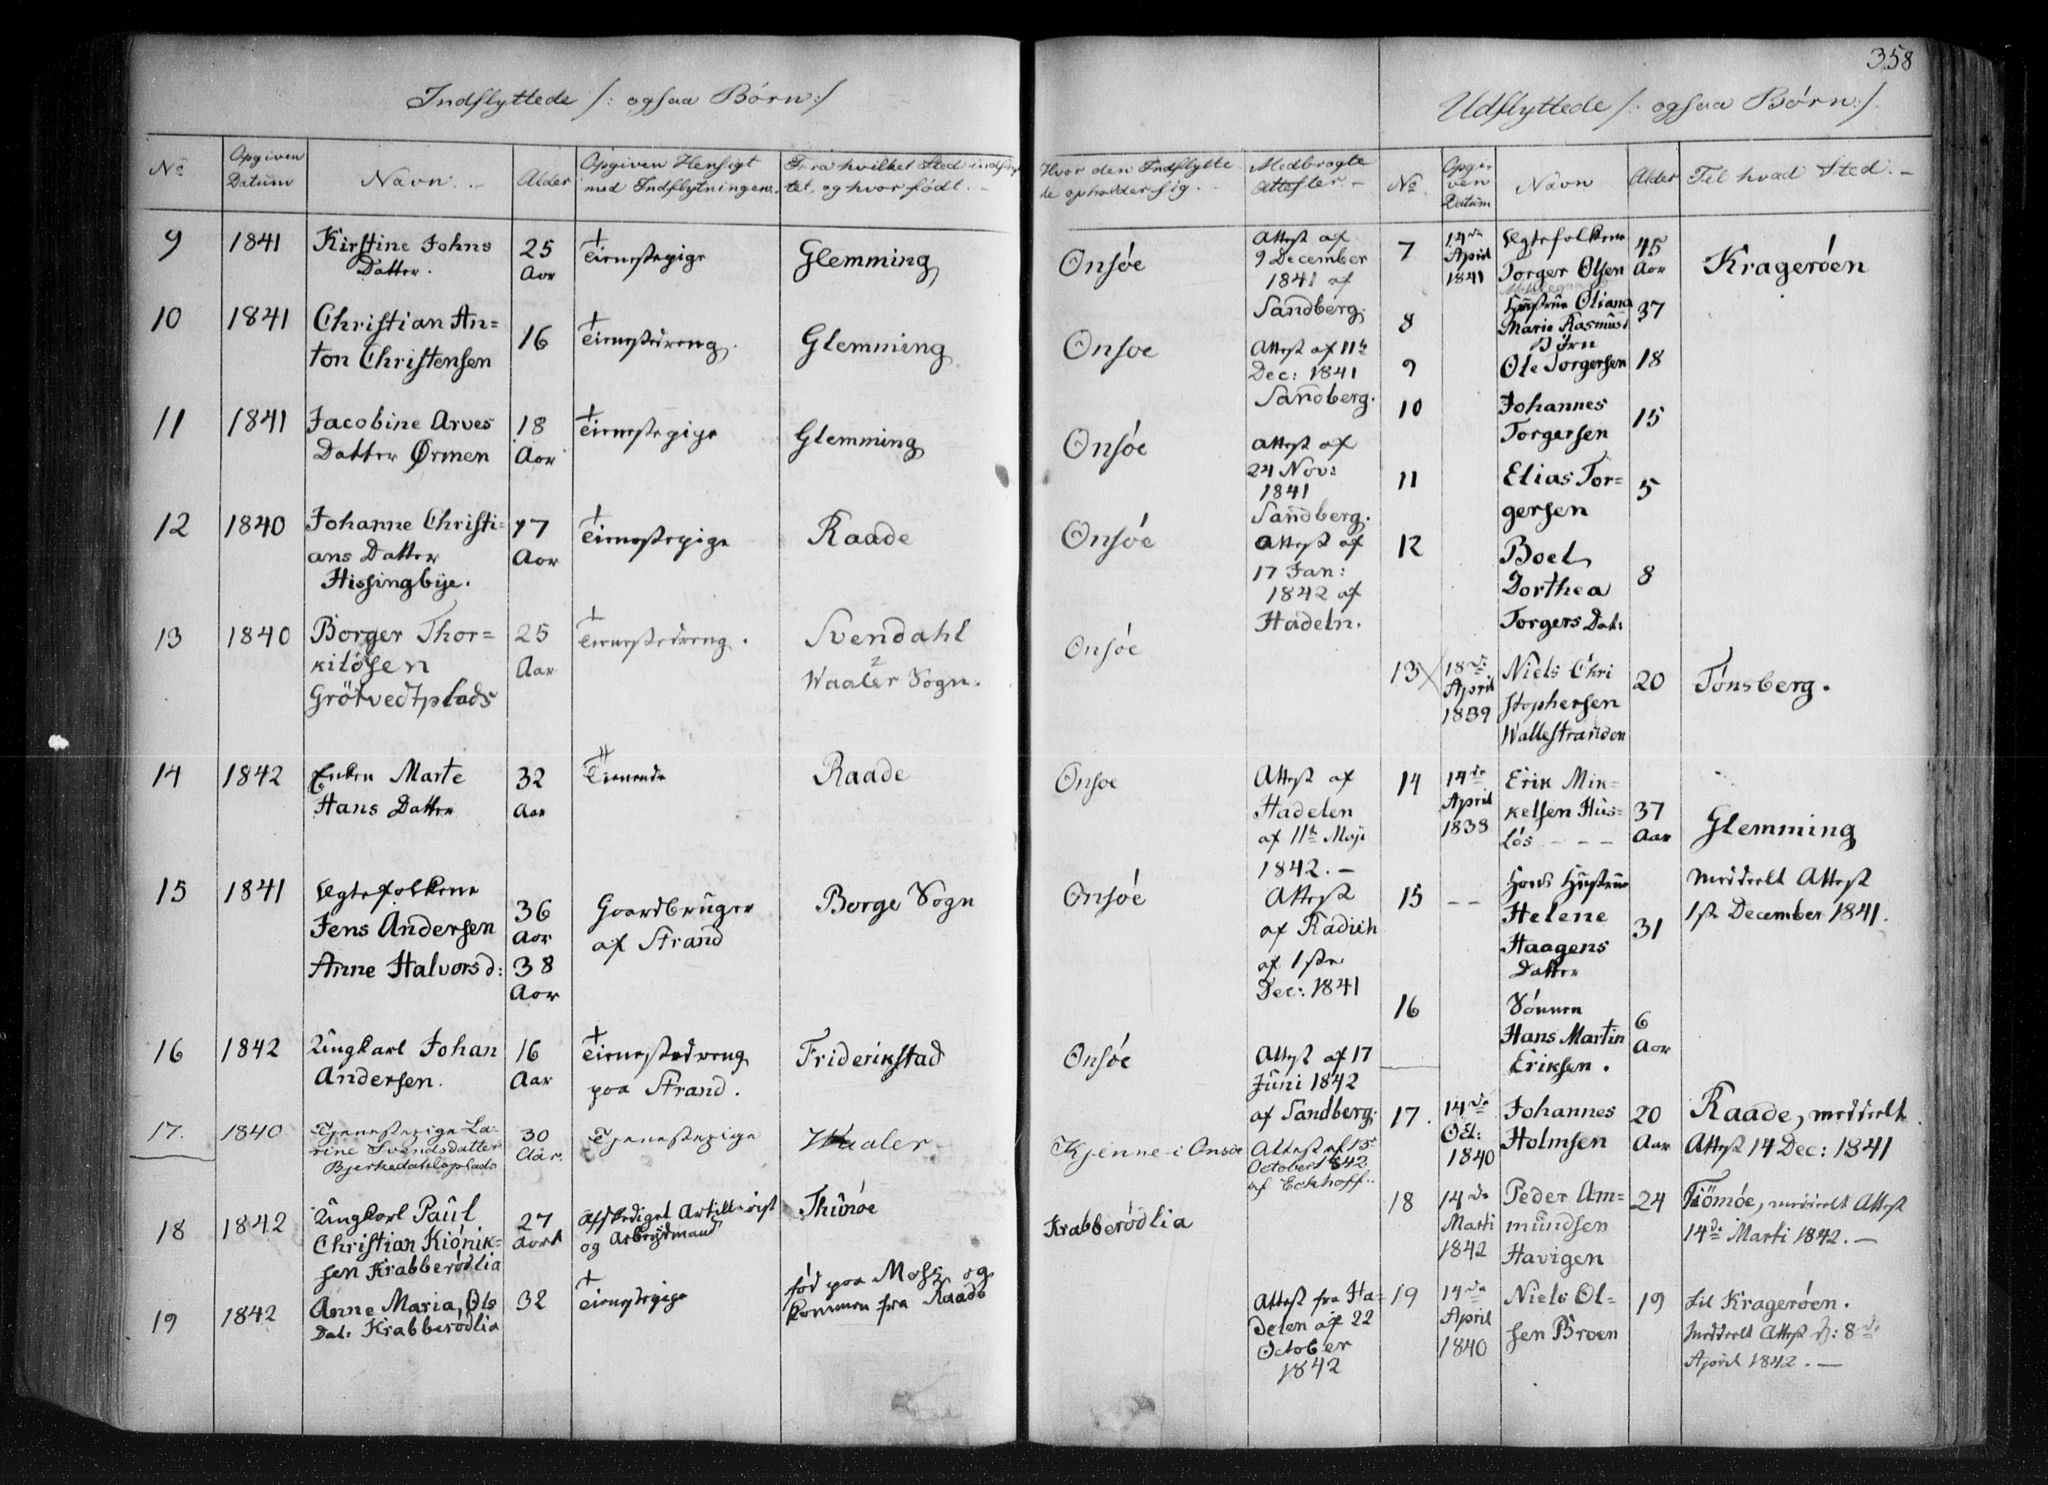 358
Indflyttede /: ogsaa Børn :/
Udflyttede /: ogsaa Børn :/
No
Opgiven Datum
Navn.
Alder
Opgiven Hensigt med Indflytningen.
Fra hvilket Sted indflyttet, og hvor født.
Hvor den Indflyttede opholder sig.
Medbragte Attester
No
Opgiven Datum
Navn
Alder
Til hvad Sted.
9 1841 Kirstine Johns 25 Tienestepige Glemming Onsøe Attest af
Datter. Aar 9 December
1841 af
Sandberg.
10 1841 Christian An= 16 Tienestedreng. Glemming Onsøe Attest af 11te
ton Christensen Dec: 1841
Sandberg.
11 1841 Jacobine Arves 18 Tienestepige Glemming Onsøe Attest af
Datter Ørmen Aar 24 Nov:
1841
Sandberg.
12 1840 Johanne Christi= 17 Tienestepige Raade Onsøe Attest af
ans Datter Aar 17 Jan:
Hissingbye. 1842 af
Hadeln.
13 1840 Borger Thor= 25 Tienestedreng. Svendahl Onsøe
kildsen Aar i
Grötvedtplads Waaler Sogn.
14 1842 Enken Marte 32 Tienende Raade Onsøe Attest af
Hans Datter Aar Hadelen
af 11te Maji
1842.
15 1841 Egtefolkene Gaardbruger Borge Sogn Onsøe Attest
Jens Andersen 36 Aar af Strand af Radich
Anne Halvorsd: 38 Aar af 1ste
Dec: 1841
16 1842 Ungkarl Johan 16 Tienestedreng Friderikstad Onsøe Attest af 17
Andersen. Aar paa Strand. Juni 1842
af Sandberg.
17. 1840 Tjenestepige La= 30 Tjenestepige Waaler Kjenne i Onsøe Attest af 15
rine Svendsdatter Aar. October 1842
Bjerkedahlsplads af Eckhoff.
18 1842 Ungkarl Paul 27 Afskediget Artillerist Thunøe Krabberødlia
Christian Kiönik= Aar og Arbeidsmand
sen Krabberødlia
19 1842 Anne Maria, Ols 32 Tienestepige fød paa Moss og Attest fra Ha=
Dat: Krabberødlia kommen fra Raade delen af 22
October
1842
7 14de Egtefolkene 45 Kragerøen
April Torger Olsen Aar
1841
8 Hustrue Oliana 37
Marie Rasmusd
Børn
9 Ole Torgersen 18
10 Johannes 15
Torgersen
11 Elias Tor= 5
gersen
12 Boel 8
Dorthea
Torgers Dat:
13 18de Niels Chri 20 Tønsberg.
April stophersen
1839 Wallestranden
14 14de Erik Mik= 37 Glemming
April kelsen Hus= Aar
1838 løs
15 -- Hans Hustrue 31 meddeelt Attest
Helene 1ste December 1841.
Haagens
Datter
16 Sønnen 6
Hans Martin Aar
Eriksen.
17. 14de Johannes 20 Raade, meddeelt
Oct: Holmsen Aar Attest 14 Dec: 1841
1840
18 14de Peder Am= 24 Tiömøe, meddelt Attest
Marti mundsen 14de Marti 1842.
1842 Havigen
19 14de Niels Ol= 19 til Kragerøen.
April sen Broen meddeelt Attest d: 8de
1840 April 1842.